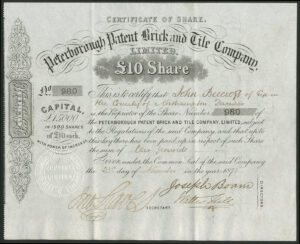 CERTIFICATE OF SHARE.
Peterborough Patent Brick and Tile Company,
LIMITED.
£10 Share
No 980
This is to Certify that John
of
the County of Northampton
is the Proprietor of the Share Number 980 of
the PETERBOROUGH PATENT BRICK AND TILE COMPANY, LIMITED, subject to
the Regulations of the said Company, and that up to
this day there has been paid up in respect of such Share
the sum of Pounds
Given under the Common Seal of the said Company
the 23rd day of November in the year 187
CAPITAL,
£15,000
IN 1500 SHARES
of £10 each,
WITH POWER OF INCREASE
Joseph
DIRECTORS.
SECRETARY.